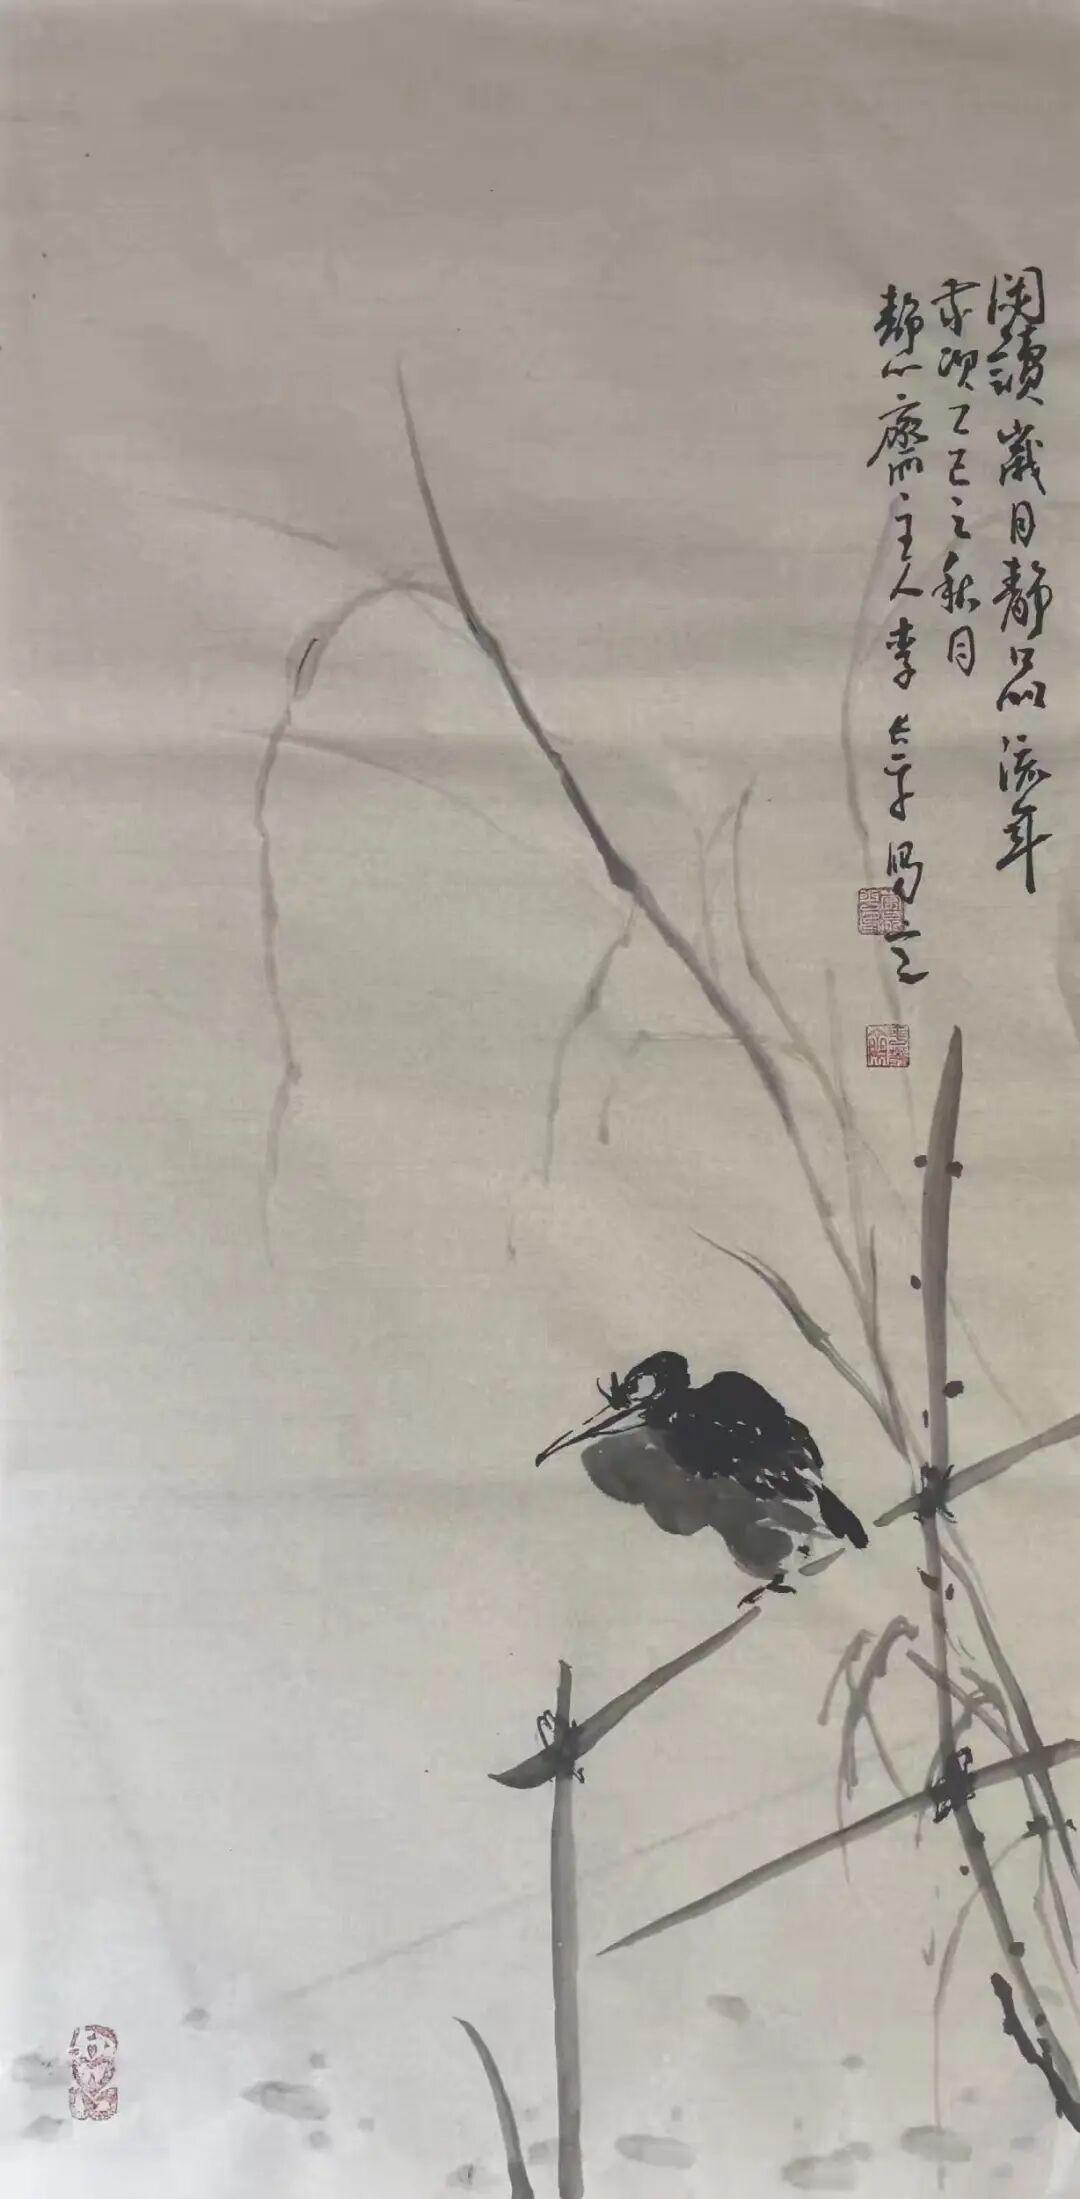 阅讀歲月静品流年
歲次乙巳之秋月
静心齋主人李長平写之